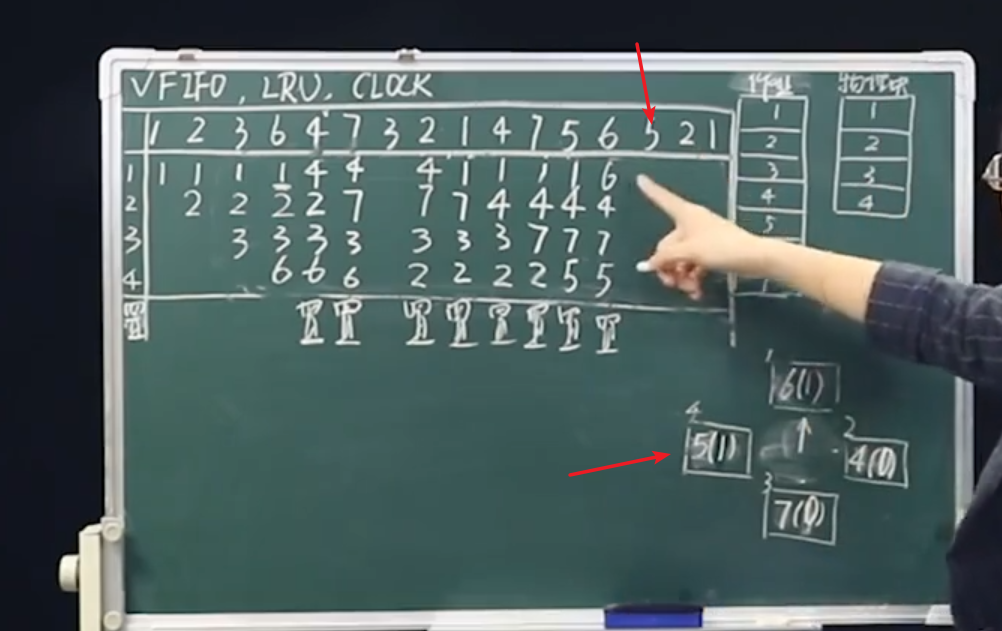 √FIFO, LRU, CLOCK
1 2 3 6 4 7 3 2 1 4 7 5 6 5 2 1
1 1 1 1 1 4 4 4 1 1 1 1 6
2 2 2 2 2 7 7 7 4 4 4 4
3 3 3 3 3 3 3 3 7 7 7
4 6 6 6 2 2 2 2 5 5
置 置 置 置 置 置 置 置 置
1
2
3
4
5
物理块
1
2
3
4
1
6(1)
4
5(1)
2
4(0)
3
7(0)